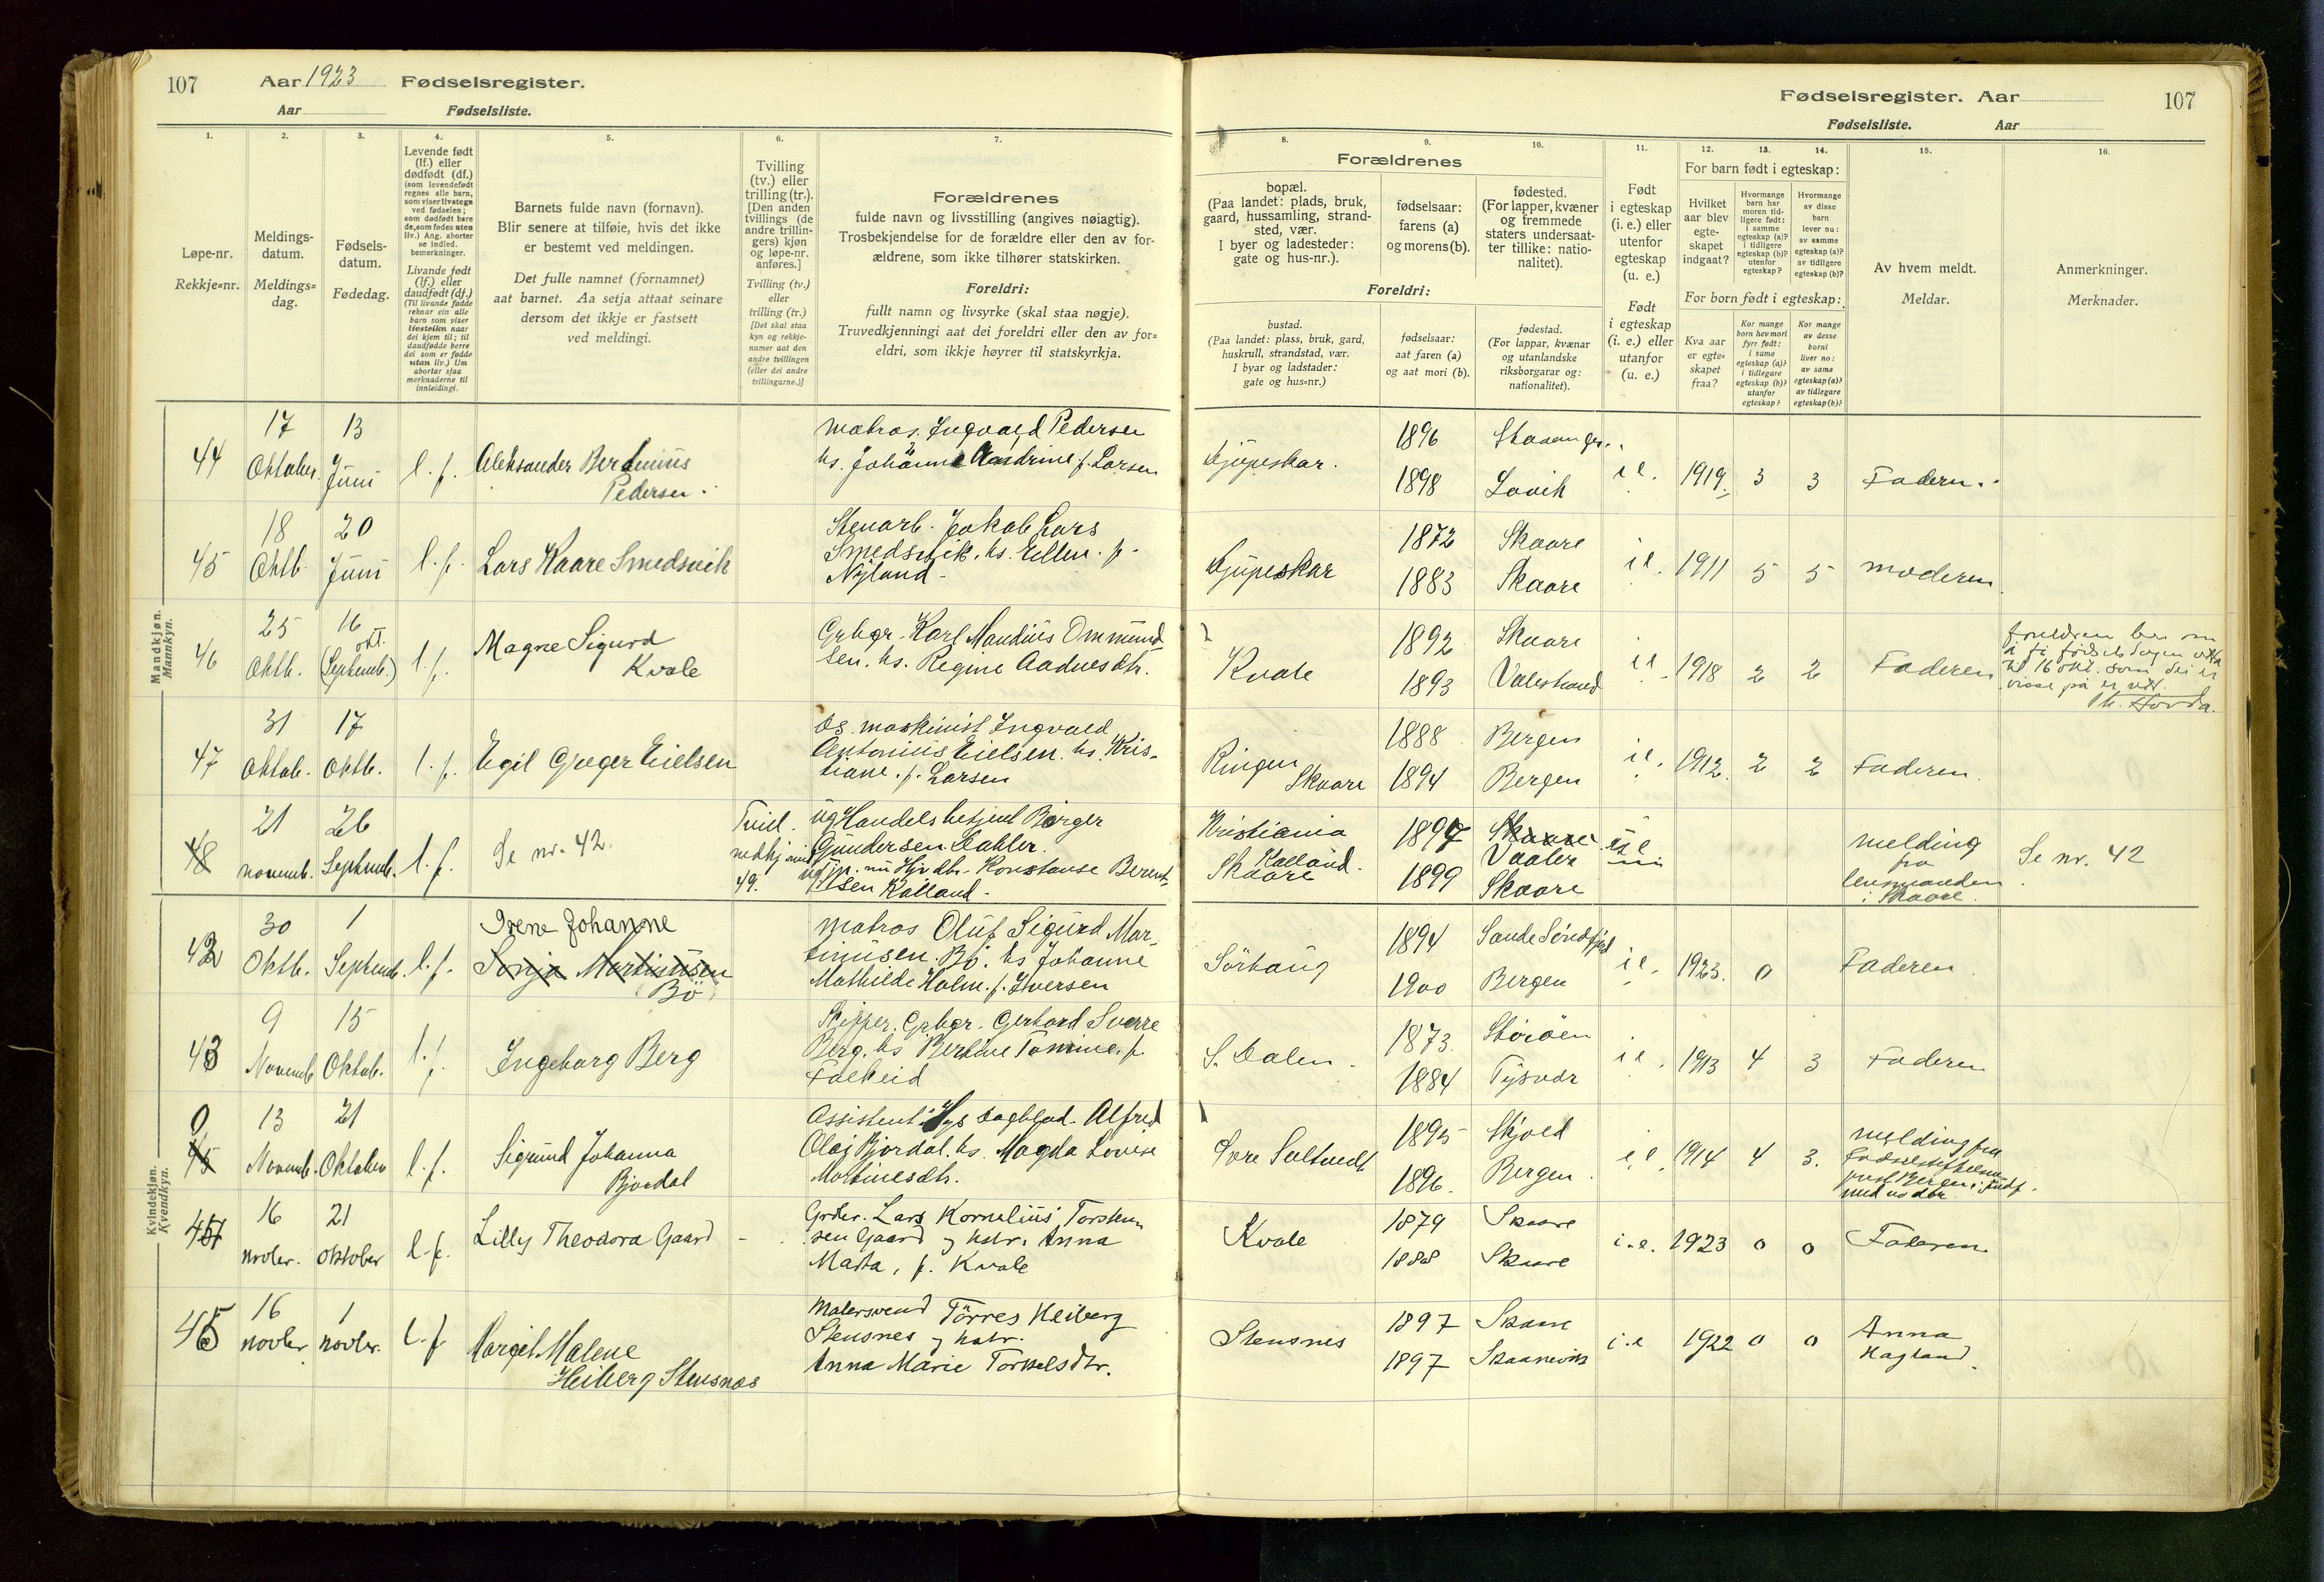 107 Aar 1923 Fødselsregister.
Aar Fødselsliste.
Fødselsregister. Aar 107
Fødselsliste. Aar
1. 2. 3. 4. 5. 6. 7.
Løpe-nr.
Rekkje=nr.
Meldings-
datum.
Meldings=
dag.
Fødsels-
datum.
Fødedag.
Levende født
(lf.) eller
dødfødt (df.)
(som levendefødt
regnes alle barn,
som viser livstegn
ved fødselen;
som dødfødt bare
de, som fødes uten
liv.) Ang. aborter
se indled.
bemerkninger.
Livande født
(lf.) eller
daudfødt (df.)
(Til livande fødde
reknar ein alle
born som viser
livsteikn naar
dei kjem til; til
daudfødde berre
dei som er fødde
utan liv.) Um
abortar sjaa
merknaderne til
innleidingi.
Barnets fulde navn (fornavn).
Blir senere at tilføie, hvis det ikke
er bestemt ved meldingen.
Det fulle namnet (fornamnet)
aat barnet. Aa setja attaat seinare
dersom det ikkje er fastsett
ved meldingi.
Tvilling
(tv.) eller
trilling (tr.).
[Den anden
tvillings (de
andre trillin-
gers) kjøn
og løpe-nr.
anføres.]
Tvilling (tv.)
eller
trilling (tr.)
[Det skal staa
kyn og rekkje-
numer aat den
andre tvillingen
(eller dei andre
trillingarne.)]
Forældrenes
fulde navn og livsstilling (angives nøiagtig).
Trosbekjendelse for de forældre eller den av for-
ældrene, som ikke tilhører statskirken.
Foreldri:
fullt namn og livsyrke (skal staa nøgje).
Truvedkjenningi aat dei foreldri eller den av for=
eldri, som ikkje høyrer til statskyrkja.
8. 9. 10. 11. 12. 13. 14. 15. 16.
Forældrenes
bopæl.
(Paa landet: plads, bruk,
gaard, hussamling, strand-
sted, vær.
I byer og ladesteder:
gate og hus-nr.).
fødselsaar:
farens (a)
og morens (b).
fødested.
(For lapper, kvæner
og fremmede
staters undersaat-
ter tillike: natio-
nalitet).
Foreldri:
bustad.
(Paa landet: plass, bruk, gard,
huskrull, strandstad, vær.
I byar og ladstader:
gate og hus=nr.)
fødselsaar:
aat faren (a)
og aat mori (b).
fødestad.
(For lappar, kvænar
og utanlandske
riksborgarar og:
nationalitet).
Født
i egteskap
(i. e.) eller
utenfor
egteskap
(u. e.)
Født
i egteskap
(i. e.) eller
utanfor
(u. e.)
For barn født i egteskap:
Hvilket
aar blev
egte-
skapet
indgaat?
Hvormange
barn har
moren tid-
ligere født:
i samme
egteskap (a)?
i tidligere
egteskap (b)?
utenfor
egteskap?
Hvormange
av disse
barn
lever nu:
av samme
egteskap (a)?
av tidligere
egteskap (b)?
For born født i egteskap:
Kva aar
er egte=
skapet
fraa?
Kor mange
born hev mori
fyrr født:
i same
egteskap (a)?
i tidlegare
egteskap (b)?
utanfor
egteskap?
Kor mange
av desse
borni
liver no:
av same
egteskap (a)?
av tidlegare
egteskap (b)?
Av hvem meldt.
Meldar.
Anmerkninger.
Merknader.
Mandkjøn.
Mannkyn.
44 17 Oktober. 13 Juni l. f. Aleksander
Pedersen.
matros. Ingvald Pedersen
hs. Johanne f. Larsen
Gjupeskar. 1896 Stavanger.
1898 Lavik i e. 1919. 3 3 Faderen.
45 18 Oktb. 20 Juni l. f. Lars Kaare Smedsvik
Stenarb. Jakob Lars
Smedsvik. hs. Ellen. f.
Nyland
Gjupeskar 1872 Skaare
1883 Skaare i e. 1911 5 5 Moderen
46 25 Oktb. 16 okt. (Septemb.) l. f. Magne Sigurd
Kvale
Grbgr. Karl Mandius Ommund
sen. hs. Regine Aadnesdtr.
Kvale 1892 Skaare
1893 Valestrand i e 1918 2 2 Faderen
til 16 okt. som dei er
visse på er rett.
47 31 Oktob. 17 Oktb. l. f. Egil Gjeger Eielsen
maskinist Ingvald
Antonius Eielsen. hs. Kris-
tiane. f. Larsen
Ringen
Skaare 1888 Bergen
1894 Bergen i e. 1912. 2 2 Faderen.
48 21 novemb. 26 Septemb. l. f. Se nr. 42.
Tvil.
49.
ug Handelsbetjent Børger
Gundersen Dahler.
Konstanse Berent
sen Kalland
Kristiania
Kalland.
Skaare 1897 Skaare Vaaler
1899 Skaare
melding
fra
lensmanden
i Skaare. Se nr. 42
Kvindekjøn.
Kvendkyn.
42 30 Oktb. 1 Septemb. l. f. Irene Johanne
Sonja Martinusen
Bö
matros Oluf Sigurd Mar-
tinusen. Bö. hs Johanne
Mathilde Holm. f. Iversen
Sørhaug 1894 Sande Söndfjord
1900 Bergen i e. 1923. 0 Faderen.
43 9 Novemb 15 Oktob. l. f. Ingeborg Berg
Skipper. Grbgr. Gerhard Sverre
Berg. hs Bertine Tomine. f.
Falkeid
S. Dalen. 1873. Storöen
1884 Tysvær i e. 1913 4 3 Faderen
13 Novemb. 21 Oktober l. f. Sigrund Johanna
Bjordal
Assistent Dagblad. Alfred
Olaj Bjordal. hs. Magda Lovise
Martinesdtr.
Søre Saltvedt 1895 Skjold
1896. Bergen i e. 1914 4 3. Melding fra
16 novbr. 21 oktober l. f. Lilly Theodora Gaard
Grbr. Lars Kornelius Torsten
sen Gaard og hstr. Anna
Marta, f. Kvale
Kvale 1879 Skaare
1888 Skaare i. e. 1923 0 0 Faderen
45 16 novbr 1 novbr. l. f Margit Malene
Heiberg Stensnes
Malersvend Törres Heiberg
Stensnes og hstr.
Anna Marie Torkelsdtr.
Stensnes 1897 Skaare
1897 Skaanevik i. e 1922 0 0 Anna
Hagland.